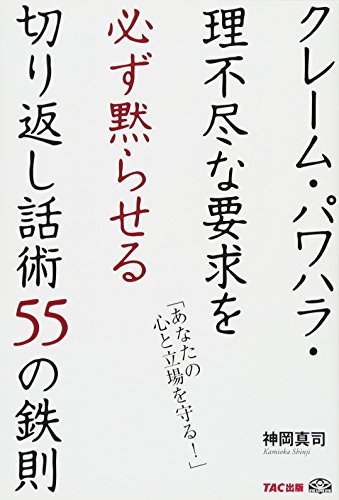 クレーム・パワハラ・
理不尽な要求を
必ず黙らせる
切り返し話術55の鉄則
「あなたの
心と立場を守る！」
神岡真司
Kamioka Shinji
TAC出版